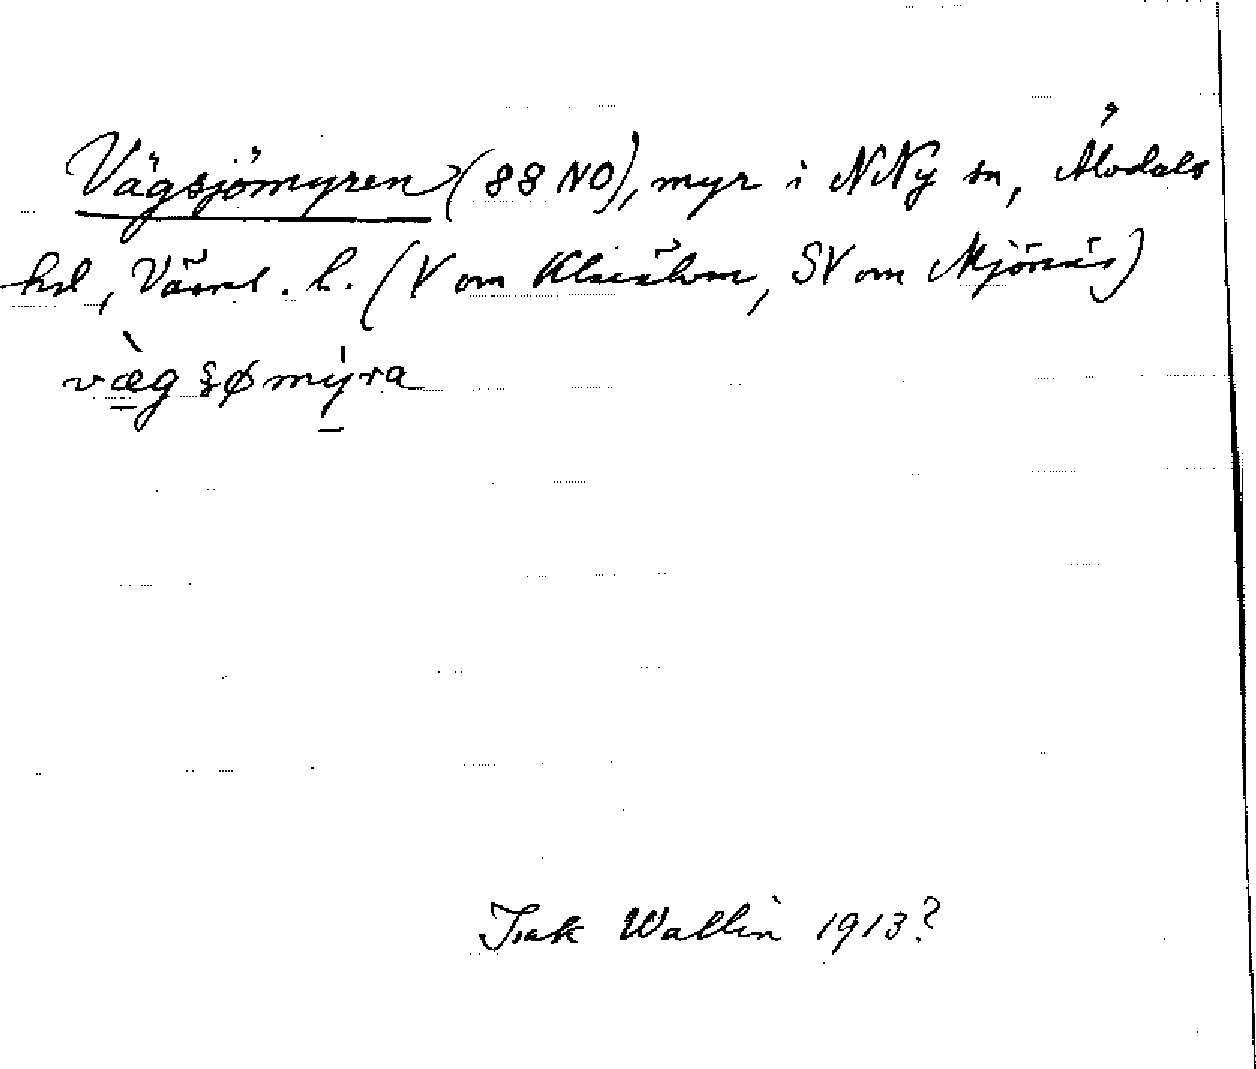 Vägsjömyren (88 NO), myr i N Ny sn, Älvdals
hd, Värml. l. (V om Klarälven, SV om Mjönäs)
væg ʂø mýra
Isak Wallin 1913?